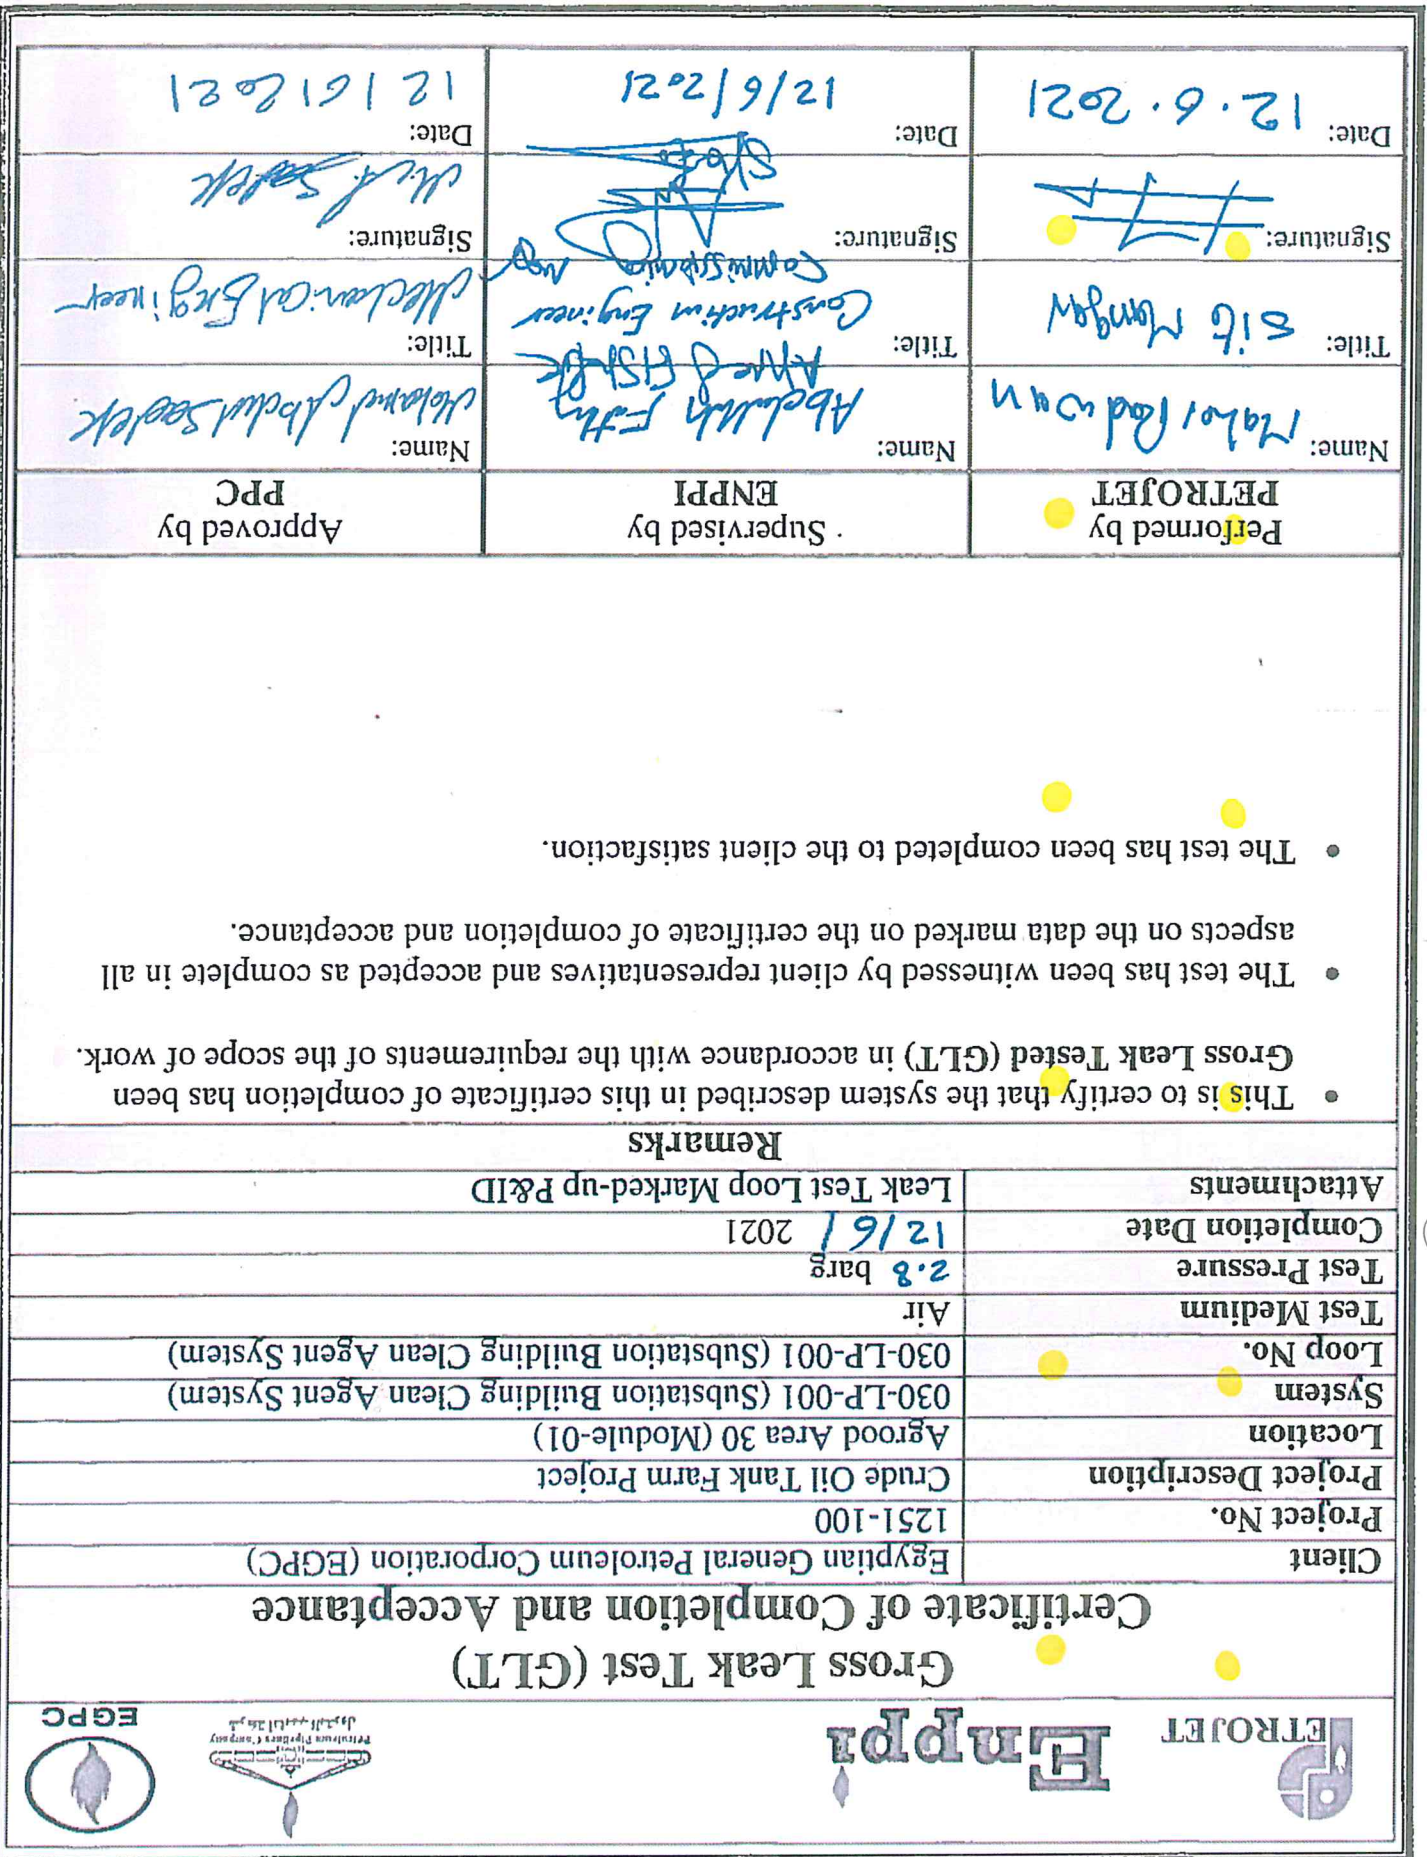 PETROJET
Enppi
Petroleum Pipelines Company
EGPC
Gross Leak Test (GLT)
Certificate of Completion and Acceptance
Client Egyptian General Petroleum Corporation (EGPC)
Project No. 1251-100
Project Description Crude Oil Tank Farm Project
Location Agrood Area 30 (Module-01)
System 030-LP-001 (Substation Building Clean Agent System)
Loop No. 030-LP-001 (Substation Building Clean Agent System)
Test Medium Air
Test Pressure 2.8 barg
Completion Date 12/6/ 2021
Attachments Leak Test Loop Marked-up P&ID
Remarks
• This is to certify that the system described in this certificate of completion has been
Gross Leak Tested (GLT) in accordance with the requirements of the scope of work.
• The test has been witnessed by client representatives and accepted as complete in all
aspects on the data marked on the certificate of completion and acceptance.
• The test has been completed to the client satisfaction.
Performed by
PETROJET
Supervised by
ENPPI
Approved by
PPC
Name: Maher Radwan
Name: Abdullah Fathy
Ahmed ElSh
Name: Mohamed Abdul Sadek
Title: Site Manger
Title: Construction Engineer
Commissioning
Title: Mechanical Engineer
Signature:
Signature:
Signature: Sadek
Date: 12.6.2021
Date: 12/6/2021
Date: 12/6/2021